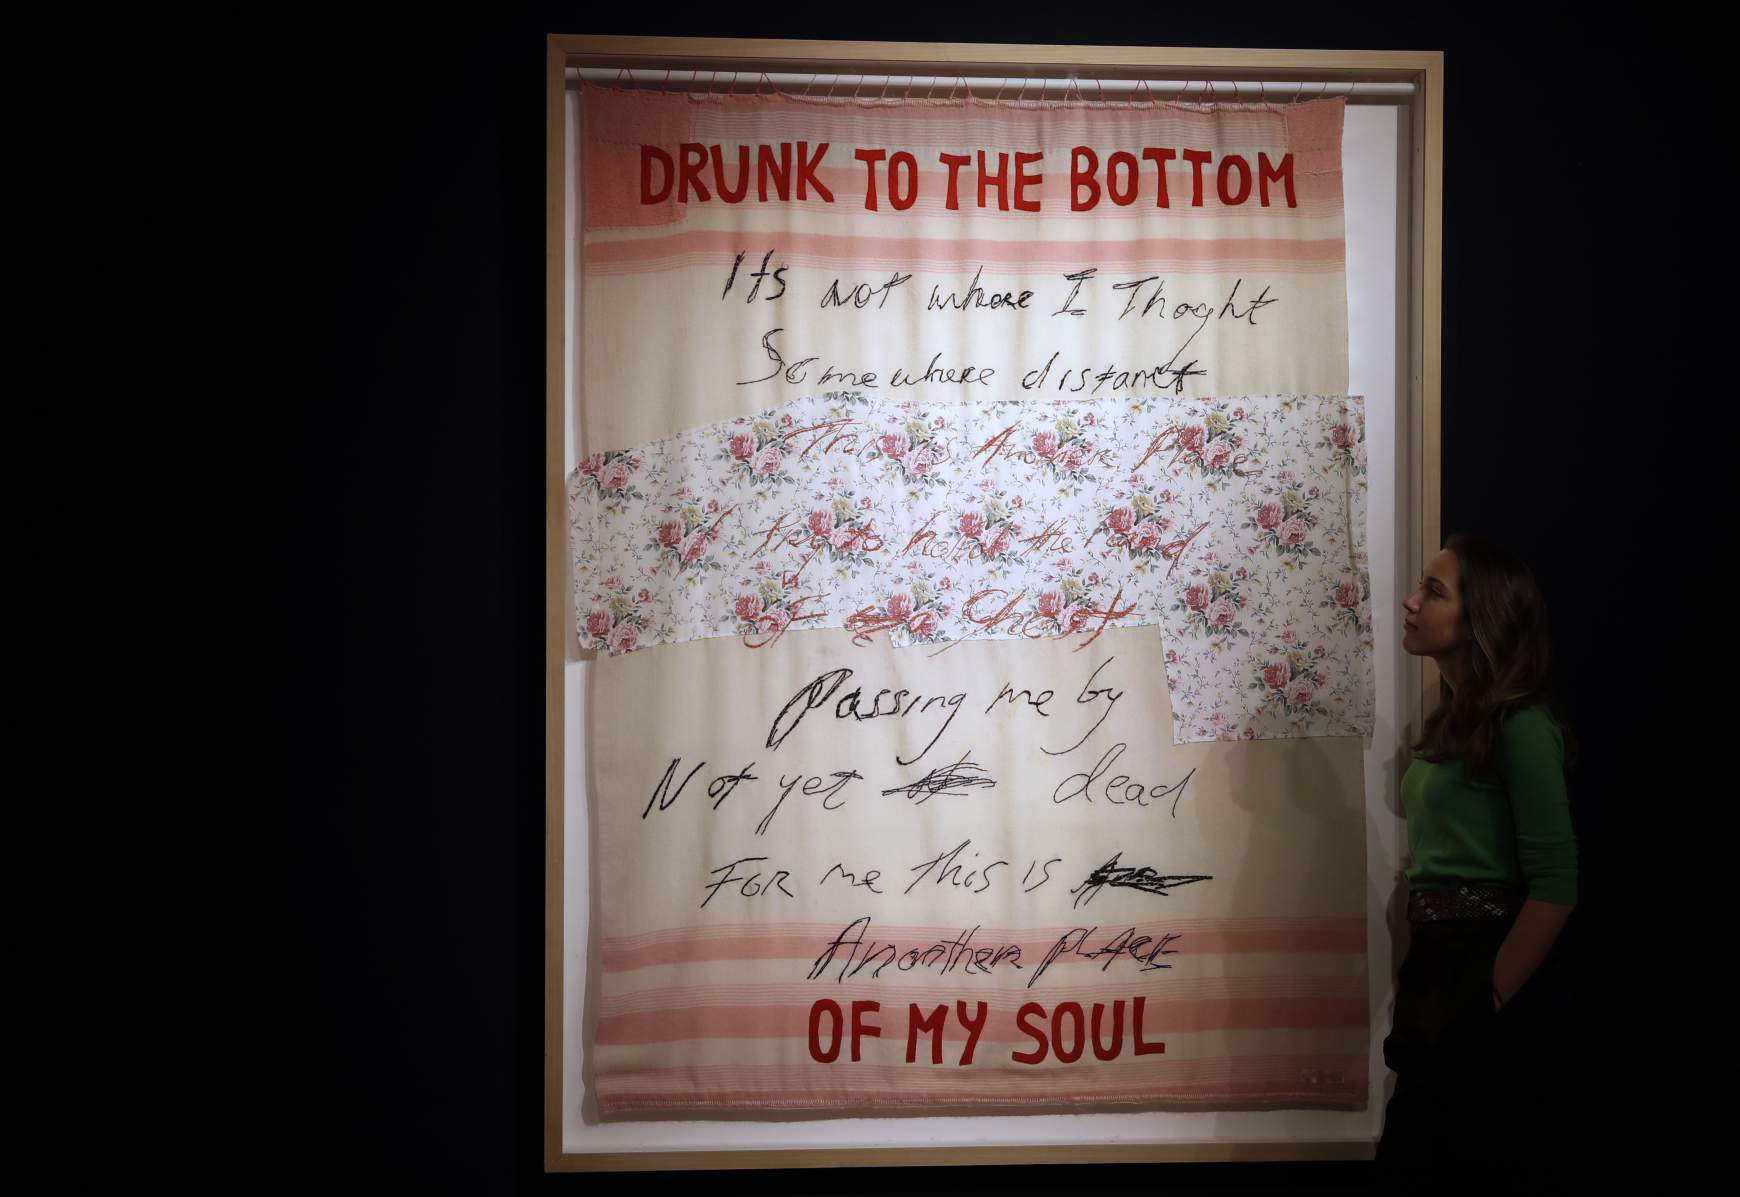 DRUNK TO THE BOTTOM
Its not where I Thoght
Somewhere distant
This is Another Place
I try to hold the hand
of a Ghost
Passing me by
Not yet dead
FOR me this is
Anoother PLACE
OF MY SOUL